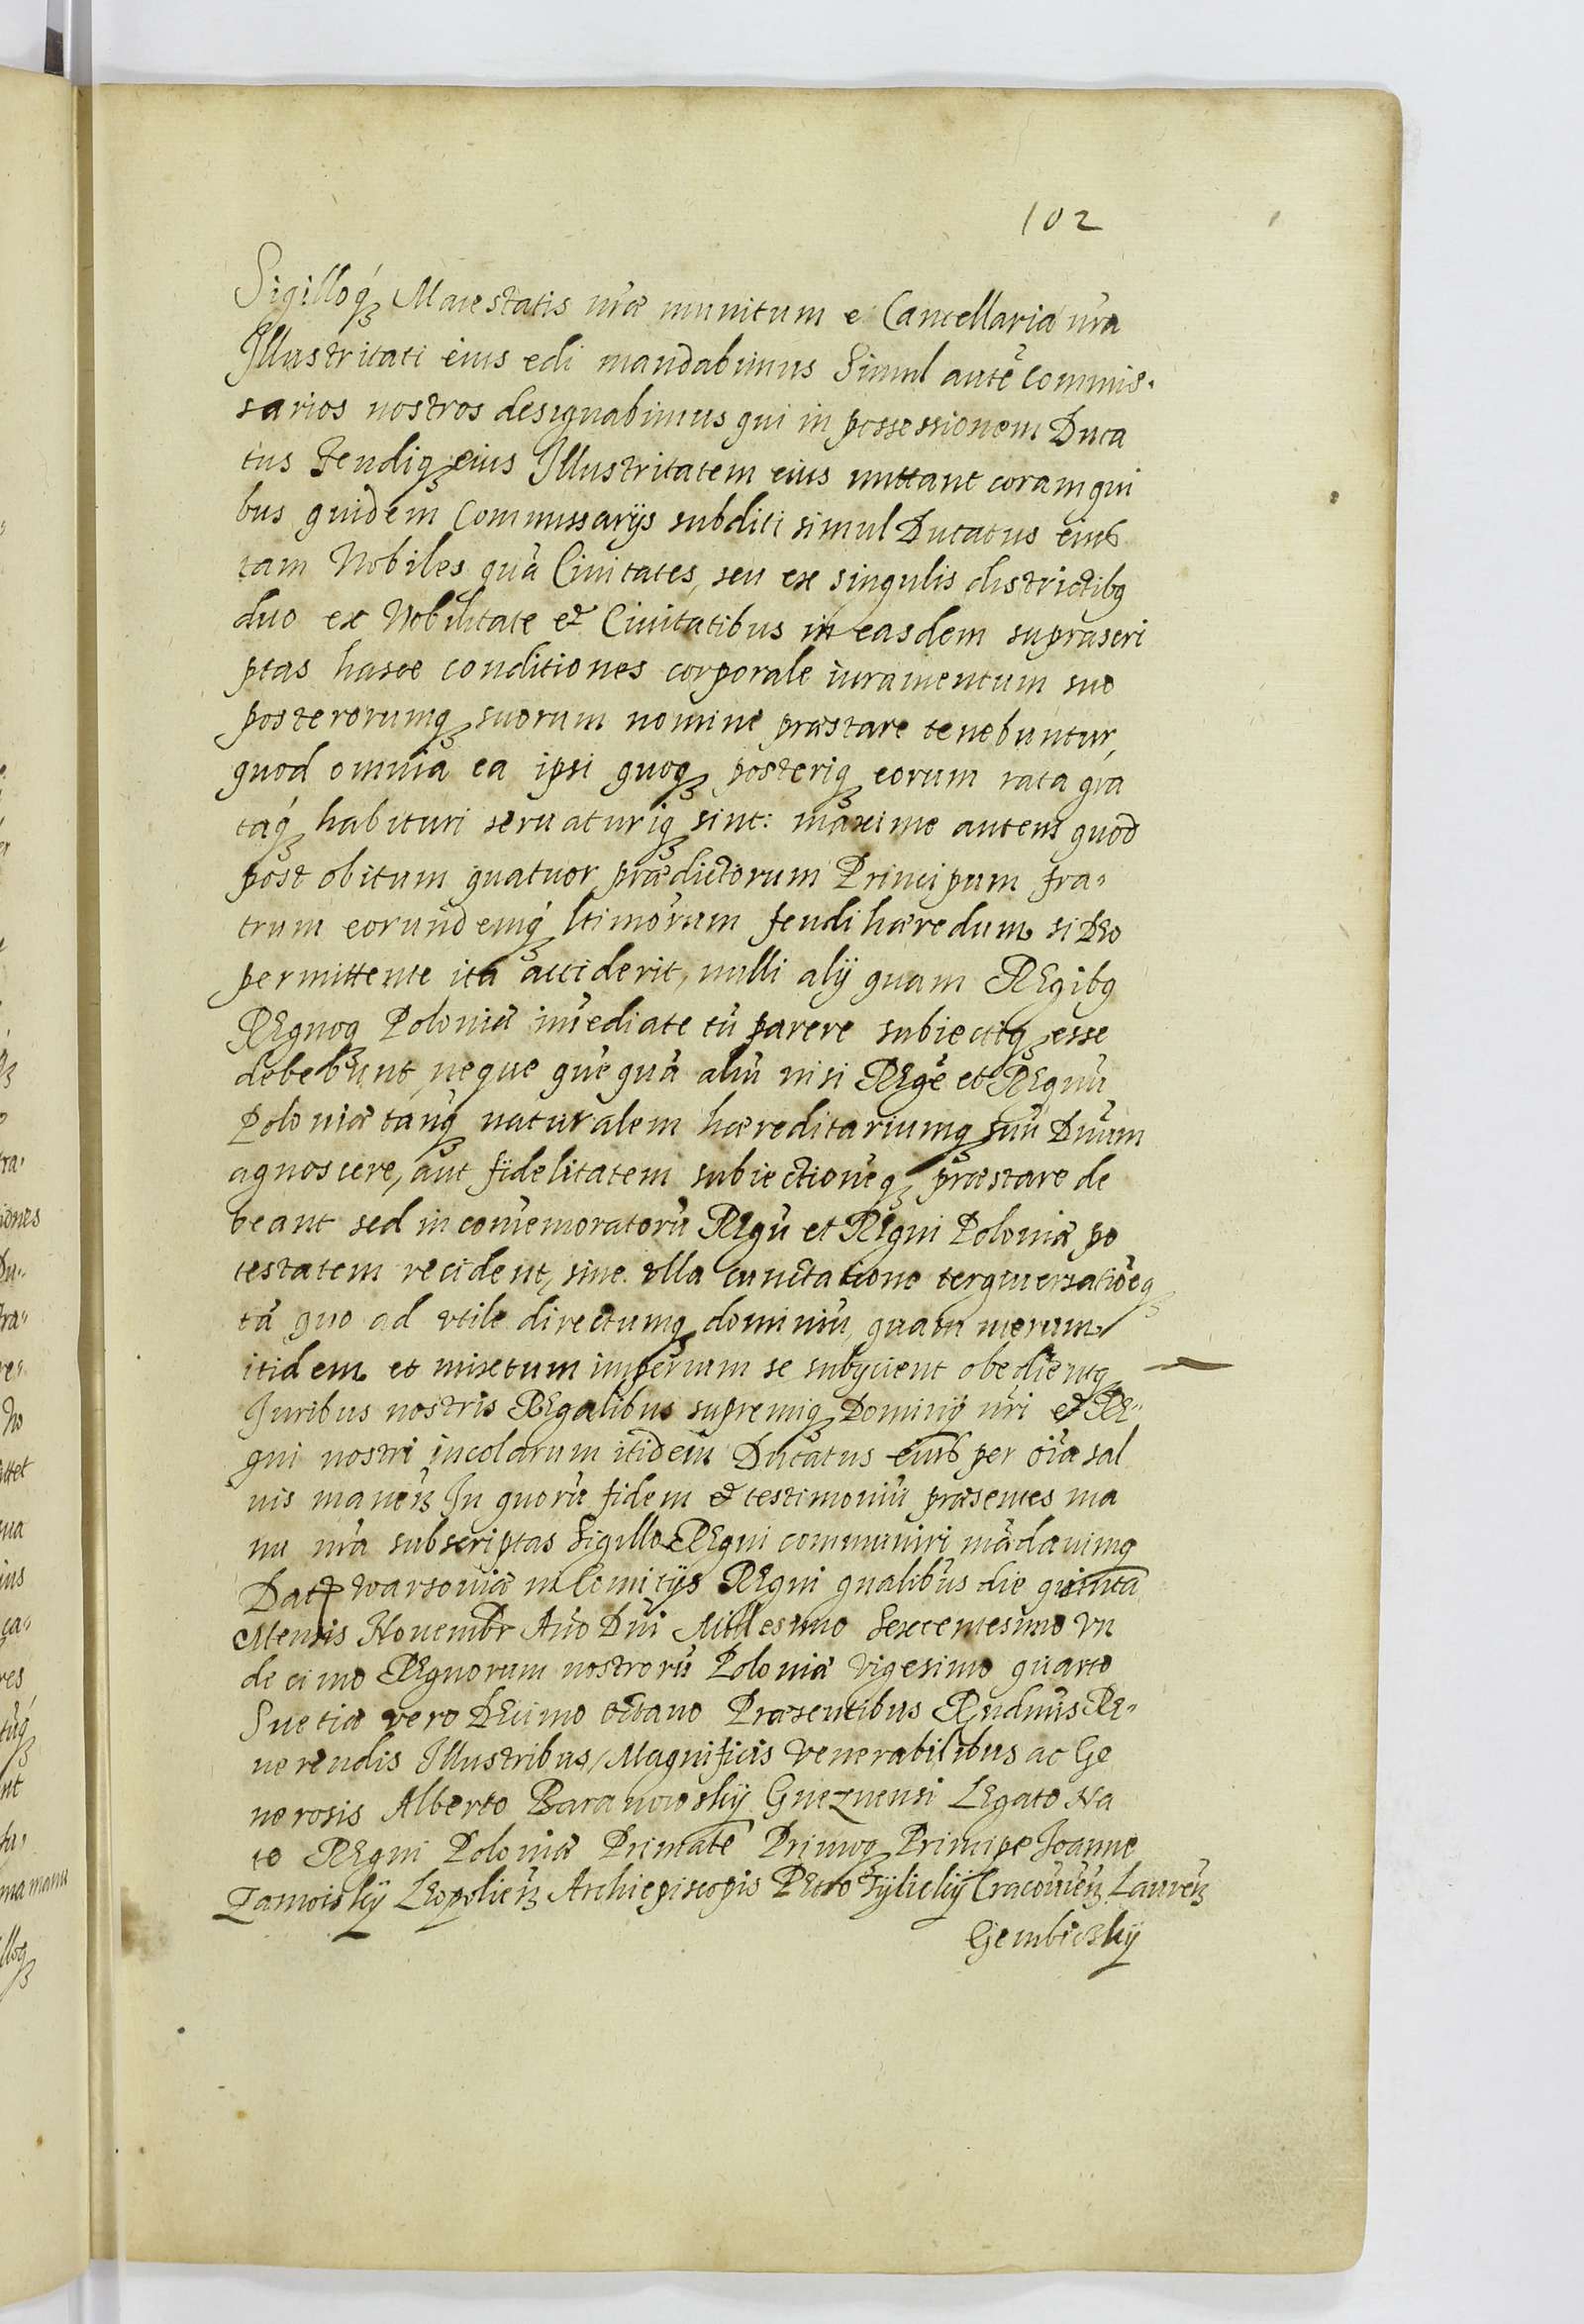 102
Sigilloq́ꝫ Maiestatis nr̃æ munitum e Cancellaria nr̃a
Illustritati eius edi mandabimus Simul autẽ Commis-
sarios nostros designabimus qui in possessionem Duca
tus Feudiqꝫ eius Illustritatem eius mittant coram qui
bus quidem Commissarijs subditi simul Ducatus eius
tam Nobiles quã Ciuitates, seu ex singulis districtibꝗ
duo ex Nobilitate et Ciuitatibus in easdem suprascri
ptas hasce conditiones corporale iuramentum suo
posterorumqꝫ suorum nomine præstare tenebuntur,
quod omnia ea ipsi quoqꝫ posteriqꝫ eorum rata gra
taq́ꝫ habituri seruaturiqꝫ sint: maxime autem quod
post obitum quatuor prædictorum Principum fra-
trum eorundemq́ꝫ ltimorum feudi hæredum si Deo
permittente ita acciderit, nulli alij quam REgibꝗ
REgnoqꝫ Poloniæ im̃ediate tũ parere subiectiqꝫ esse
debebunt, neque quẽquã aliũ nisi REgẽ et REgnũ
Poloniæ tanq̃ꝫ naturalem hæreditariumqꝫ suũ Dñum
agnoscere, aut fidelitatem subiectionẽqꝫ præstare de
beant sed in com̃emoratorũ REgũ et REgni Poloniæ po
testatem recident, sine vlla cunctatione tergiuersatiõeqꝫ
tã quo ad vtile directumqꝫ dominiũ, quam merum
itidem et mixtum imperium se subijcient obedientqꝫ
Juribus nostris REgalibus supremiqꝫ Dominij nr̃i et RE-
gni nostri incolarum itidem Ducatus eius per oĩa sal
uis maneñ In quorũ fidem et testimoniũ præsentes ma
nu nr̃a subscriptas Sigillo REgni communiri mãdauimꝗ
Dat Warsouiæ in Comitijs REgni gñalibus die quinta
Mensis Nouembr Año Dñi Millesimo Sexcentesimo Vn
decimo REgnorum nostrorũ Poloniæ Vigesimo quarto
Suetiæ vero DEcimo octauo Præsentibus REndmis RE-
uerendis Illustribus, Magnificis Venerabilibus ac Ge
nerosis Alberto Baranowskÿ Gneznensi LEgato Na
to REgni Poloniæ Primate Primoqꝫ Principe Joanne
Zamoiskÿ LEopolieñ Archiepiscopis PEtro Tÿlickÿ Cracouieñ Laureñ
Gembickÿ